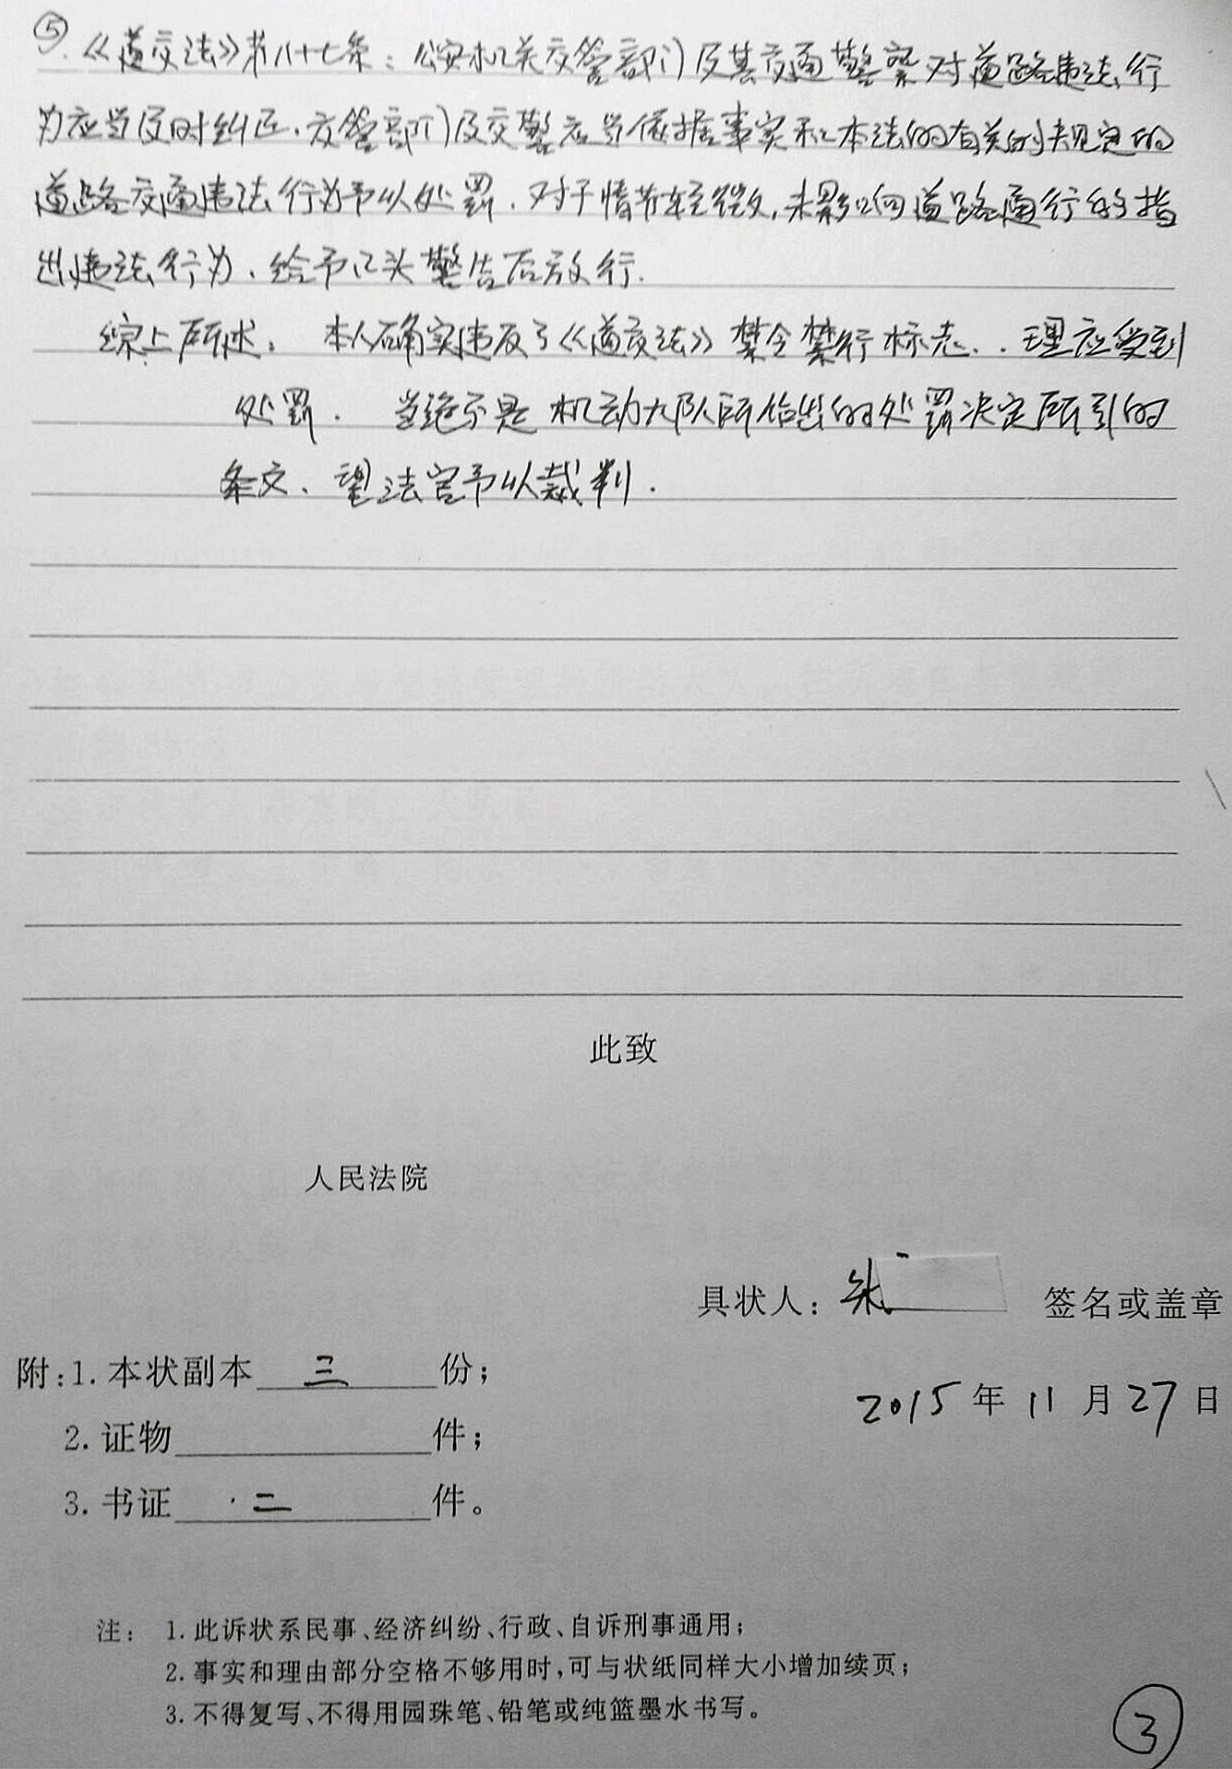 ⑤.《道交法》第八十七条：公安机关交管部门及其交通警察对道路违法行
为应当及时纠正.交管部门及交警应当依据事实和本法的有关的规定的
道路交通违法行为予以处罚.对于情节轻微,未影响道路通行的指
出违法行为、给予口头警告后放行.
综上所述：本人确实违反了《道交法》禁令禁行标志..理应受到
处罚. 当绝不是机动大队所给出的处罚决定所引的
条文、望法官予以裁判.
此致
人民法院
具状人：朱 签名或盖章
附:1.本状副本 三 份；
2015年11月27日
2.证物 件；
3.书证 二 件。
注： 1.此诉状系民事、经济纠纷、行政、自诉刑事通用；
2.事实和理由部分空格不够用时,可与状纸同样大小增加续页；
3.不得复写、不得用园珠笔、铅笔或纯篮墨水书写。
③